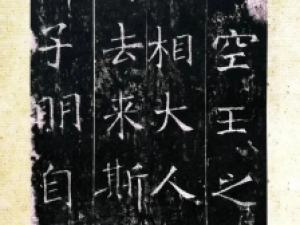 空王之
相大人
去来斯
子朋自